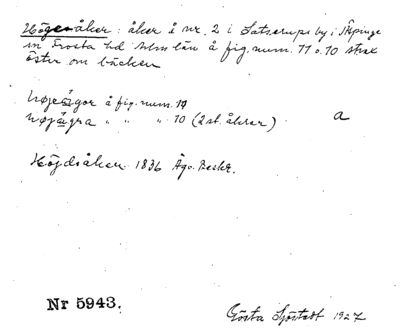 Högesåker: åker å nr. 2 i Satserups by i Äspinge
sn Frosta hd Mlm län å fig. num. 11 o. 10 strax
öster om bäcken
å fig. num. 11
" " " 10 (2 st. åkrar) a
Höjdsåker 1836 Äg. Beskr.
Nr 5943.
Gösta Sjöstedt 1927